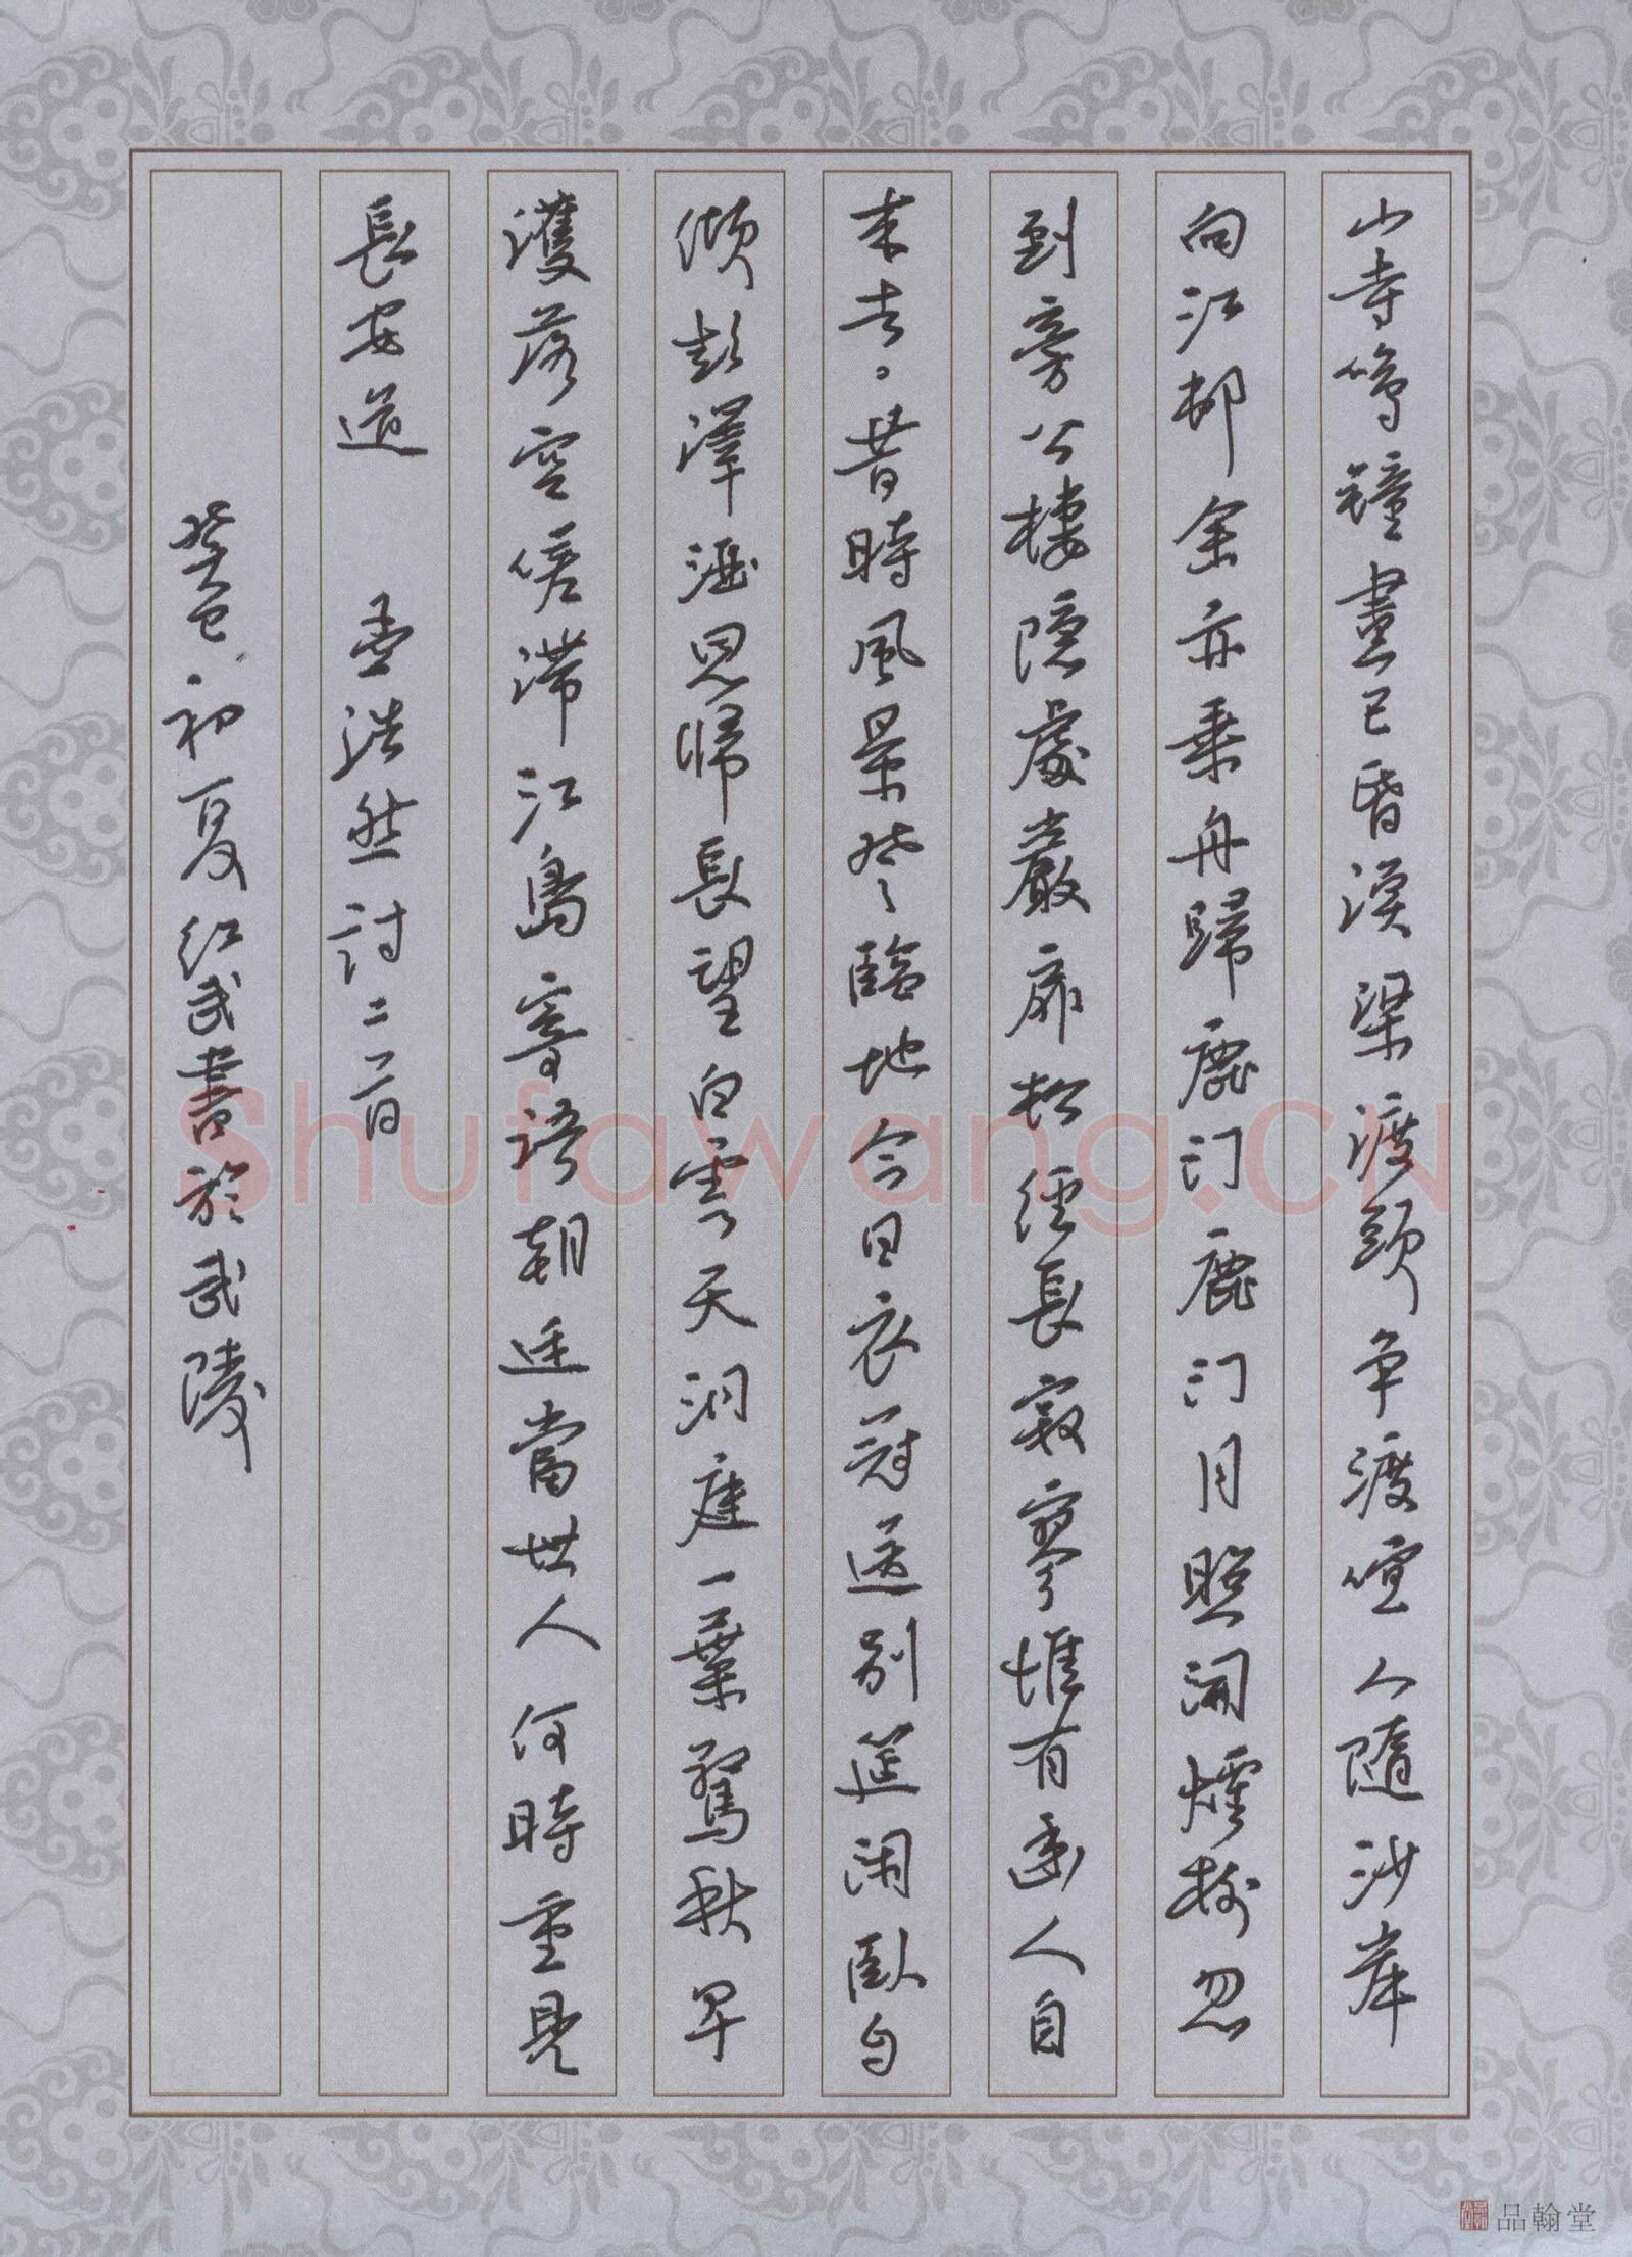 山寺鳴鐘晝已昏漁梁渡頭争渡喧人隨沙岸
向江邨余亦乘舟歸鹿门鹿门月照開煙樹忽
到旁公棲隱處巖扉松徑長寂寥惟有幽人自
来去。昔時風景登臨地今日衣冠送别筵闲臥自
傾彭澤酒思歸長望白雲天洞庭一葉驚秋早
濩落空嗟滞江島寄語朝廷當世人何時重見
長安道 孟浩然詩二首
癸巳.初夏红武書於武陵
Shufawang.CN
品翰堂